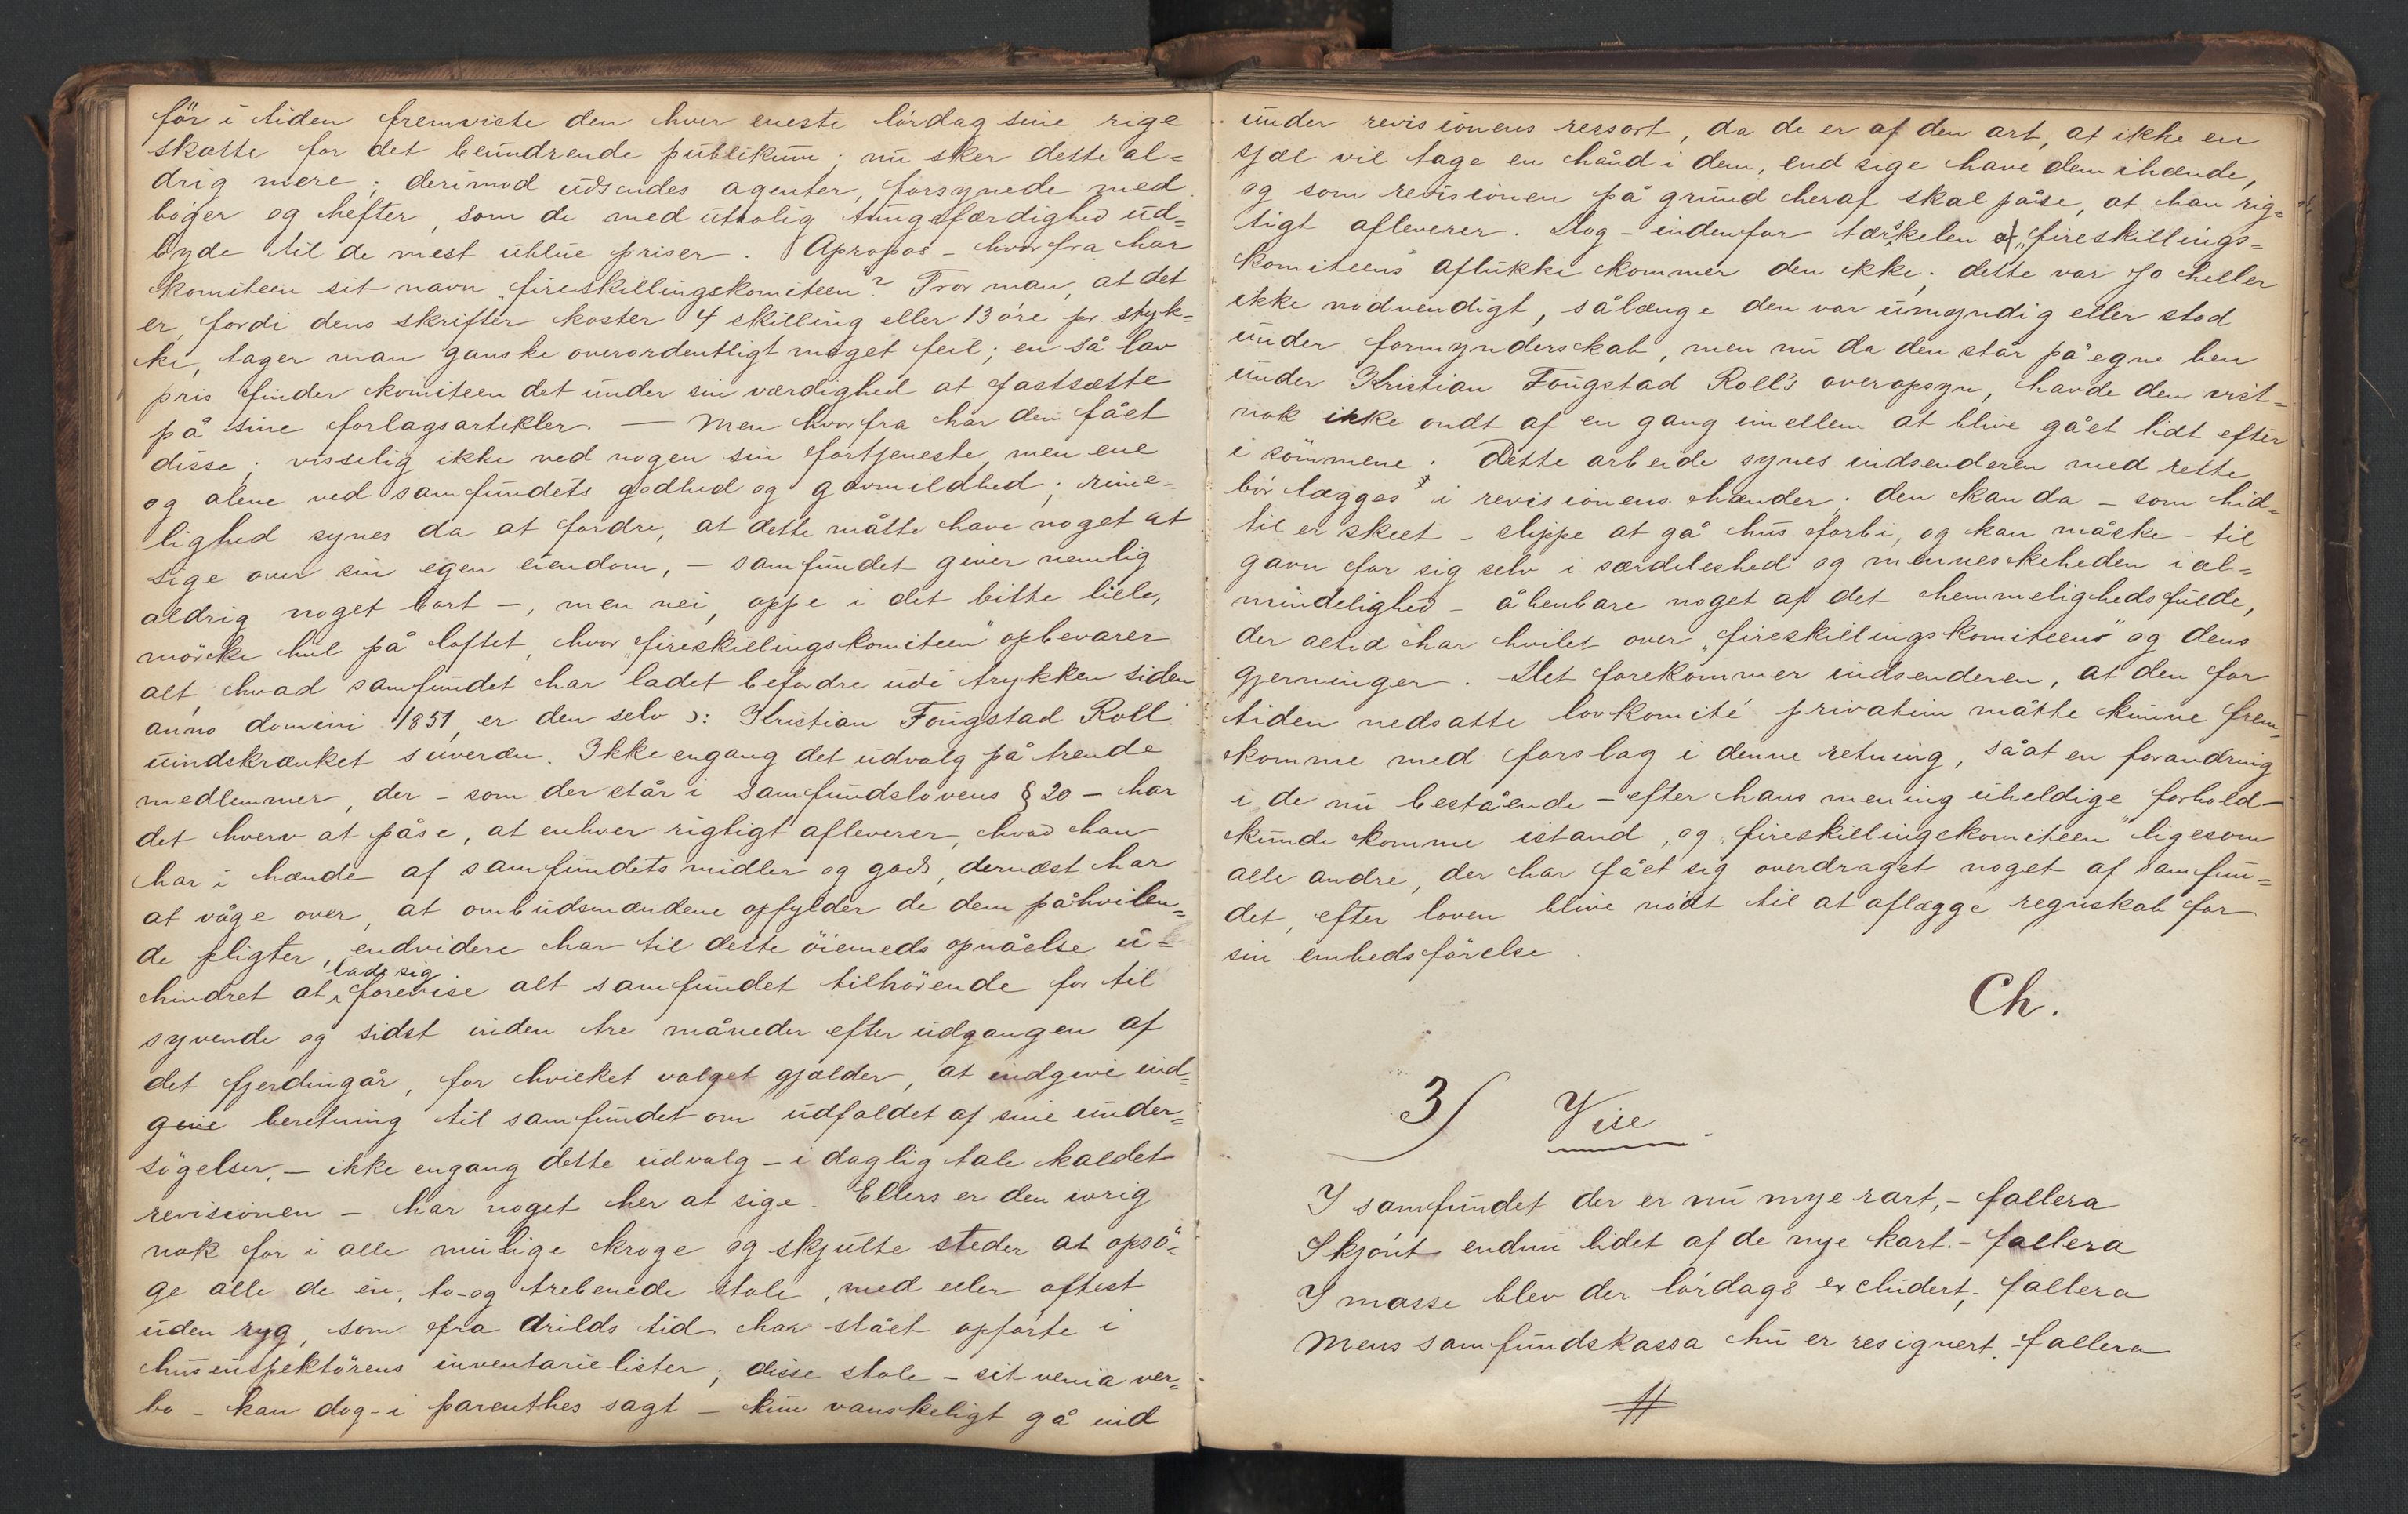 för i tiden fremviste den hver eneste lördag sine rige
skatte for det beundrende publikum; nu sker dette al=
drig mere; derimod udsendes agenter, forsynede med
böger og hefter, som de med utrolig tungefærdighed ud=
byde til de mest ublue priser. Apropos – hvorfra har
komiteen sit navn „fireskillingskomiteen"? Tror man, at det
er, fordi dens skrifter koster 4 skilling eller 13 öre pr. styk=
ke, tager man ganske overordentligt meget feil; en så lav
pris finder komiteen det under sin værdighed at fastsætte
på sine forlagsartikler. — Men hvorfra har den fået
disse; visselig ikke ved nogen sin fortjeneste, men ene
og alene ved samfundets godhed og gavmildhed; rime=
lighed synes da at fordre, at dette måtte have noget at
sige over sin egen eiendom, – samfundet giver nemlig
aldrig noget bort –, men nei, oppe i det bitte lille,
mörke hul på loftet, hvor „fireskillingskomiteen" opbevarer
alt, hvad samfundet har ladet befordre udi trykken siden
anno domini 1851, er den selv ɔ: Kristian Fougstad Roll
uindskrænket suveræn. Ikke engang det udvalg på trende
medlemmer, der – som der står i samfundslovens § 20 – har
det hverv at påse, at enhver rigtigt afleverer, hvad han
har i hænde af samfundets midler og gods, dernæst har
at våge over, at ombudsmændene opfylder de dem påhvilen=
de pligter, endvidere har til dette öiemeds opnåelse u=
hindret at lade sig forevise alt samfundet tilhörende for til
syvende og sidst inden tre måneder efter udgangen af
det fjerdingår, for hvilket valget gjælder, at indgive ind=
give beretning til samfundet om udfaldet af sine under=
sögelser, – ikke engang dette udvalg – i daglig tale kaldet
revisionen – har noget her at sige. Ellers er den ivrig
nok for i alle mulige kroge og skjulte steder at opsö=
ge alle de en-, to- og trebenede stole, med eller oftest
uden ryg, som fra Arilds tid har stået opförte i
husinspektörens inventarielister; disse stole – sit venia ver=
bo – kan dog – i parenthes sagt – kun vanskeligt gå ind
under revisionens ressort, da de er af den art, at ikke en
sjæl vil tage en hånd i dem, end sige have dem ihænde,
og som revisionen på grund heraf skal påse, at han rig=
tigt afleverer. Dog – indenfor tærskelen af „fireskillings=
komiteens" aflukke kommer den ikke; dette var jo heller
ikke nödvendigt, sålænge den var umyndig eller stod
under formynderskab, men nu da den står på egne ben
under Kristian Fougstad Roll's overopsyn, havde den vist=
nok ikke ondt af en gang imellem at blive gået lidt efter
i sömmene. Dette arbeide synes indsenderen med rette
bör lægges i revisionens hænder; den kan da – som hid=
til er skeet – slippe at gå hus forbi, og kan måske – til
gavn for sig selv i særdeleshed og menneskeheden i al=
mindelighed – åbenbare noget af det hemmelighedsfulde,
der altid har hvilet over „fireskillingskomiteens" og dens
gjerninger. Det forekommer indsenderen, at den for
tiden nedsatte lovkomité privatim måtte kunne frem=
komme med forslag i denne retning, såat en forandring
i de nu bestående – efter hans mening uheldige forhold –
kunde komme istand, og „fireskillingskomiteen" ligesom
alle andre, der har fået sig overdraget noget af samfun=
det, efter loven blive nödt til at aflægge regnskab for
sin embedsförelse.
Ch.
3) Vise.
I samfundet der er nu mye rart, – fallera
Skjönt endnu lidet af de nye kart. – fallera
I masse blev der lördags excludert, – fallera
Mens samfundskassa hu er resignert. – fallera